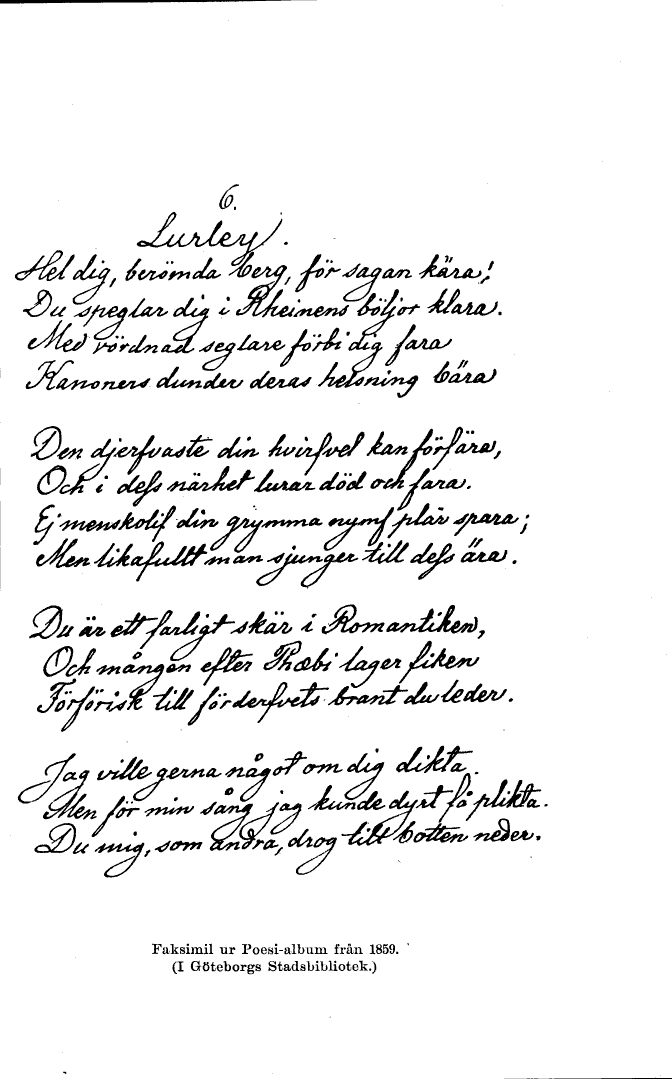 6.
Lurley.
Hel dig, berömda berg, för sagan kära!
Du speglar dig i Rheinens böljor klara.
Med vördnad seglare förbi dig fara
Kanoners dunder deras helsning bära
Den djerfvaste din hvirfvel kan förfära,
Och i dess närhet lurar död och fara.
Ej menskolif din grymma nymf plär spara;
Men likafullt man sjunger till dess ära.
Du är ett farligt skär i Romantiken,
Och mången efter Phœbi lager fiken
Förförisk till förderfvets brant du leder.
Jag ville gerna något om dig dikta.
Men för min sång jag kunde dyrt få plikta.
Du mig, som andra, drog till botten neder.
Faksimil ur Poesi-album från 1859.
(I Göteborgs Stadsbibliotek.)